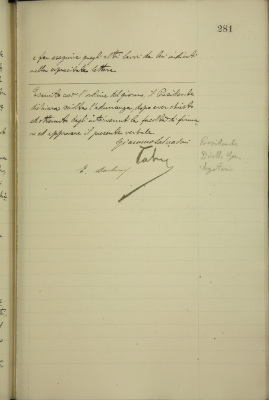 281
e far eseguire quegli altri lavori da lui indicati
nella sopracitata lettera.
Esaurito così l'ordine del giorno il Presidente
dichiara sciolta l'adunanza, dopo aver chiesto
ed ottenuto dagli intervenuti la facoltà di firmare
ed approvare il presente verbale.
Giacomo
Presidente